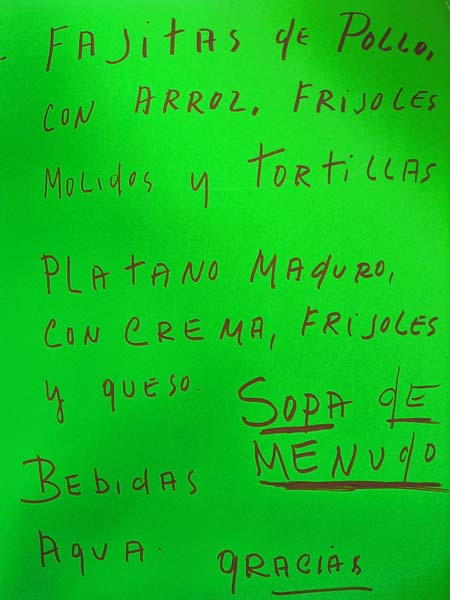 - FAJITAS de POLLO,
CON ARROZ, FRIJOLES
MOLIDOS y TORTILLAS
PLATANO MADURO,
CON CREMA, FRIJOLES
y QUESO.
SOPA dE
MENUdO
BEBIdAS
AGUA.
GRACIAS